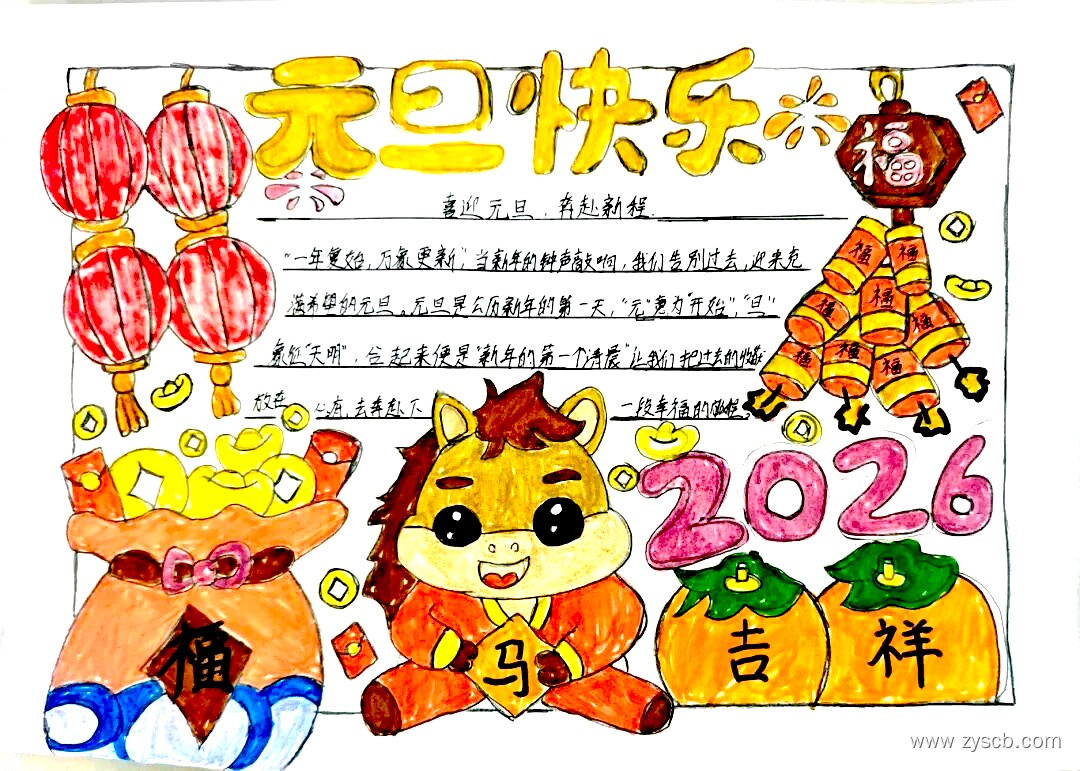 元旦快乐
福
喜迎元旦，奔赴新程.
福 福
"一年复始，万象更新"，当新年的钟声敲响，我们告别过去，迎来充
满希望的元旦。元旦是公历新年的第一天，"元"意为"开始"，"旦"
福 福 福
象征"天明"，合起来便是"新年的第一个清晨"让我们把过去的收藏
福 福 福
放在 心有，去奔赴下 一段幸福的旅程。
2026
福
马
吉
祥
www.zyscb.com